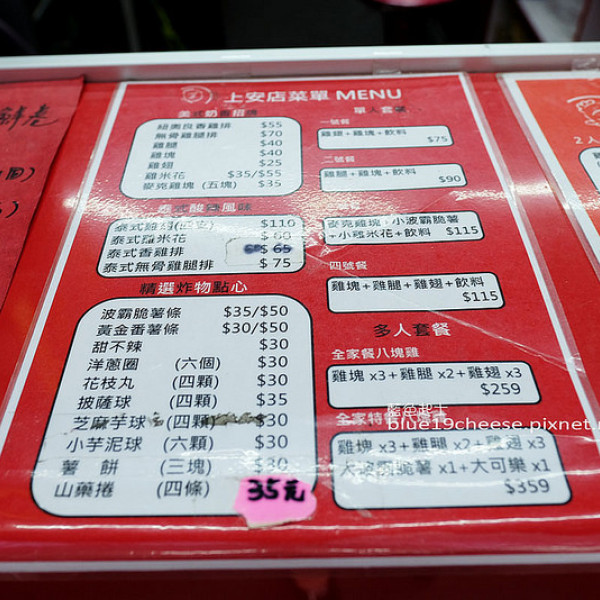 上安店菜單 MENU
紐奧良香雞排 $55
無骨雞腿排 $70
雞腿 $40
雞塊 $40
雞翅 $25
雞米花 $35/$55
麥克雞塊 (五塊) $35
泰式酸 風味
泰式雞翅 $110
泰式雞米花 $60
泰式香雞排 $65
泰式無骨雞腿排 $75
精選炸物點心
波霸脆薯條 $35/$50
黃金番薯條 $30/$50
甜不辣 $30
洋蔥圈 (六個) $30
花枝丸 (四顆) $30
披薩球 (四顆) $35
芝麻芋球 (四顆) $30
小芋泥球 (六顆) $30
薯餅 (三塊) $30
山藥捲 (四條)
35元
單人套餐
一號餐
雞翅+雞塊+飲料
$75
二號餐
雞腿+雞塊+飲料
$90
麥克雞塊+小波霸脆薯
+小雞米花+飲料 $115
四號餐
雞塊+雞腿+雞翅+飲料
$115
多人套餐
全家餐八塊雞
雞塊 x3+雞腿 x2+雞翅 x3
$259
全家特
雞塊 x3+雞腿 x2+雞翅 x3
脆薯 x1+大可樂 x1
$359
blue19cheese.pixnet.n
2人